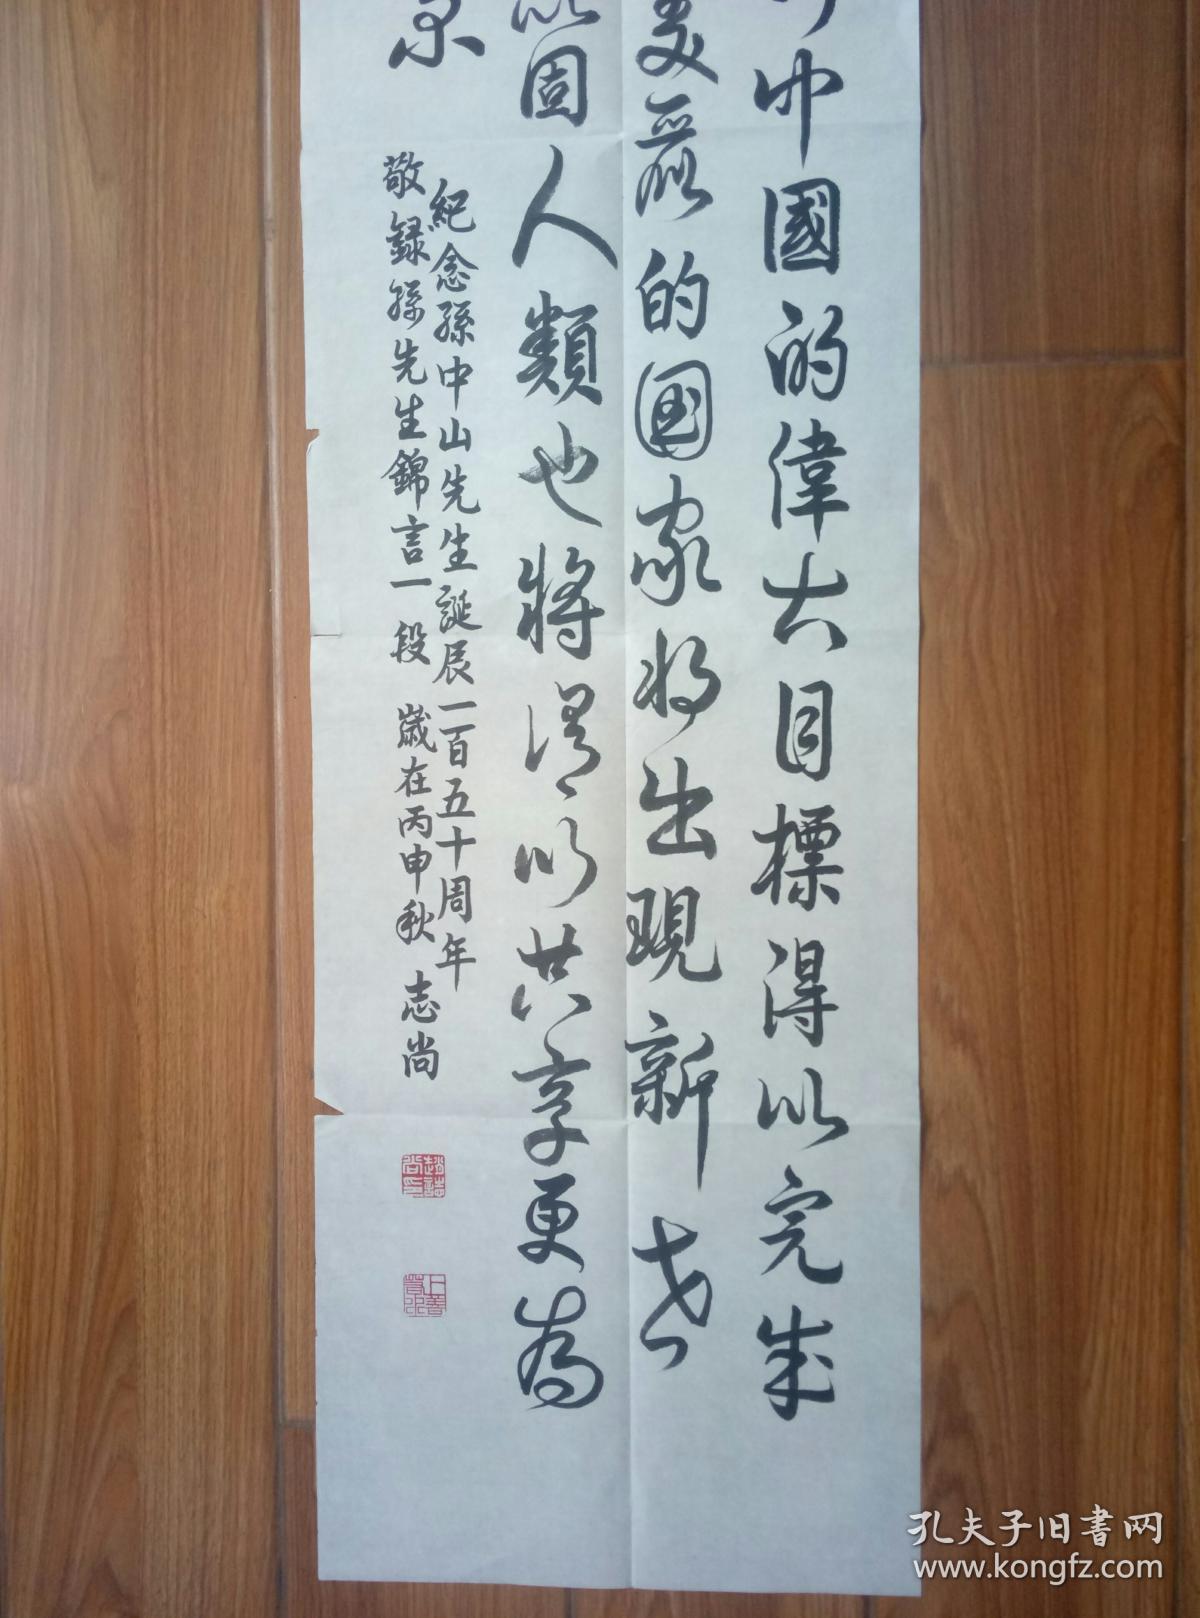 中國的偉大目標得以完成
美麗的國家將出現新
固人類也將得以共享更為
紀念孫中山先生誕辰一百五十周年
敬録孫先生錦言一段 歲在丙申秋 志尚
趙誌尚印
上善若水
孔夫子旧书网
www.kongfz.com